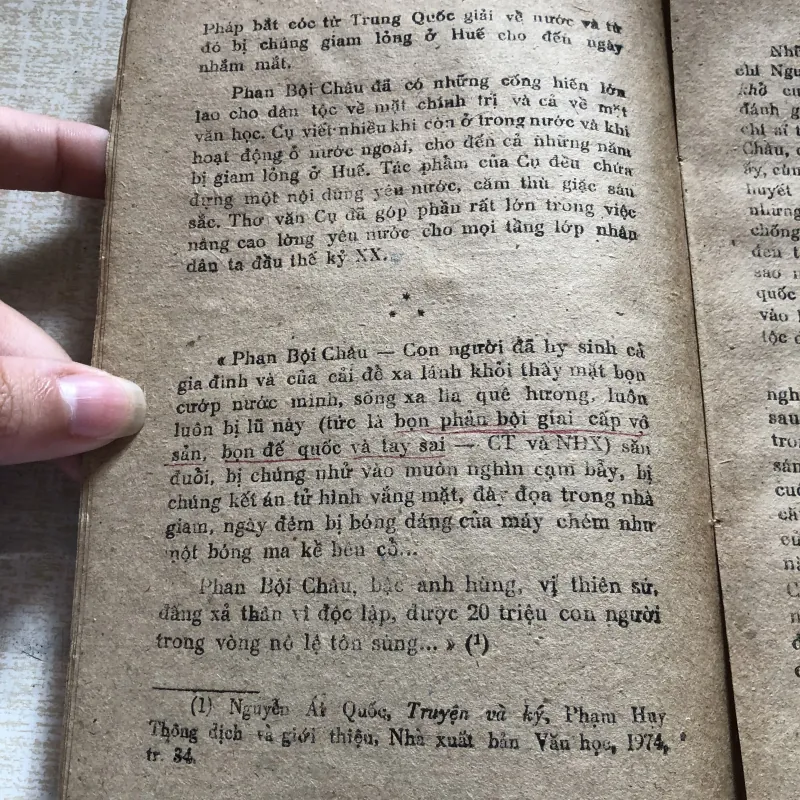 Pháp bắt cóc từ Trung Quốc giải về nước và từ
đó bị chúng giam lỏng ở Huế cho đến ngày
nhắm mắt.
Phan Bội Châu đã có những cống hiến lớn
lao cho dân tộc về mặt chính trị và cả về mặt
văn học. Cụ viết nhiều khi còn ở trong nước và khi
hoạt động ở nước ngoài, cho đến cả những năm
bị giam lỏng ở Huế. Tác phẩm của Cụ đều chứa
đựng một nội dung yêu nước, căm thù giặc sâu
sắc. Thơ văn Cụ đã góp phần rất lớn trong việc
nâng cao lòng yêu nước cho mọi tầng lớp nhân
dân ta đầu thế kỷ XX.
* * *
« Phan Bội Châu — Con người đã hy sinh cả
gia đình và của cải để xa lánh khỏi thấy mặt bọn
cướp nước mình, sống xa lìa quê hương, luôn
luôn bị lũ này (tức là bọn phản bội giai cấp vô
sản, bọn đế quốc và tay sai — CT và NĐX) săn
đuổi, bị chúng nhử vào muôn nghìn cạm bẫy, bị
chúng kết án tử hình vắng mặt, đày đọa trong nhà
giam, ngày đêm bị bóng dáng của máy chém như
một bóng ma kề bên cổ...
Phan Bội Châu, bậc anh hùng, vị thiên sứ,
đấng xả thân vì độc lập, được 20 triệu con người
trong vòng nô lệ tôn sùng... » (¹)
(1) Nguyễn Ái Quốc, Truyện và ký, Phạm Huy
Thông dịch và giới thiệu, Nhà xuất bản Văn học, 1974,
tr. 34.
chí Ngu
khờ cu
đánh g
chỉ ai t
Châu, c
ấy, cũn
huyết
nhưng
chống
đến t
sao n
quốc
vào l
tộc đ
ngh
sau
tron
sán
cuộ
că